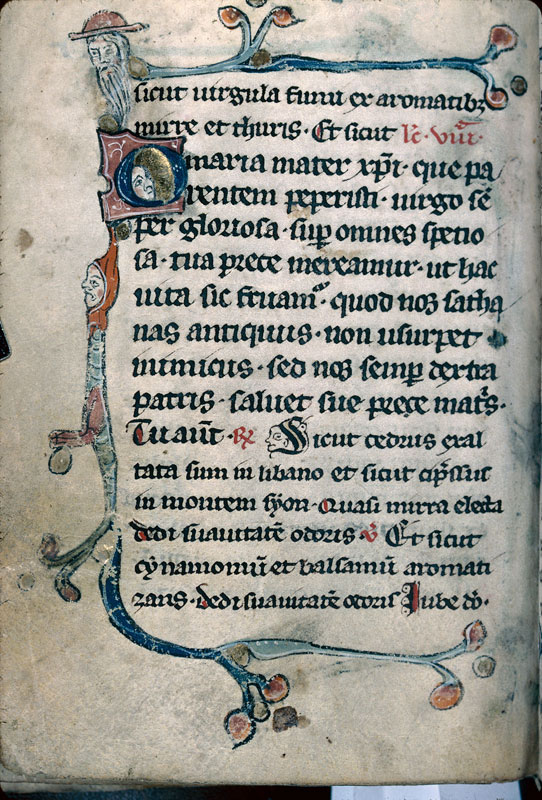 sicut uirgula fumi ex aromatibz
mirre et thuris. Et sicut lc̄. viii͛a.
O maria mater xp̄i. que pa
rentem peperisti. uirgo sē
per gloriosa. suꝑ omnes specio
sa. tua prece mereamur. ut hac
uita sic fruamᷣ. quod nos satha
nas antiquus. non usurpet
inimicus. sed nos semꝑ dextra
patris. saluet sue prece matͥs.
Tu aūt. ℟ Sicut cedrus exal
tata sum in libano et sicut cip̄ssus
in montem syon. Quasi mirra electa
dedi suauitatē odoris ℣ Et sicut
cynamomū et balsamū aromati
zans. dedi suauitatē odoris Iube dō.